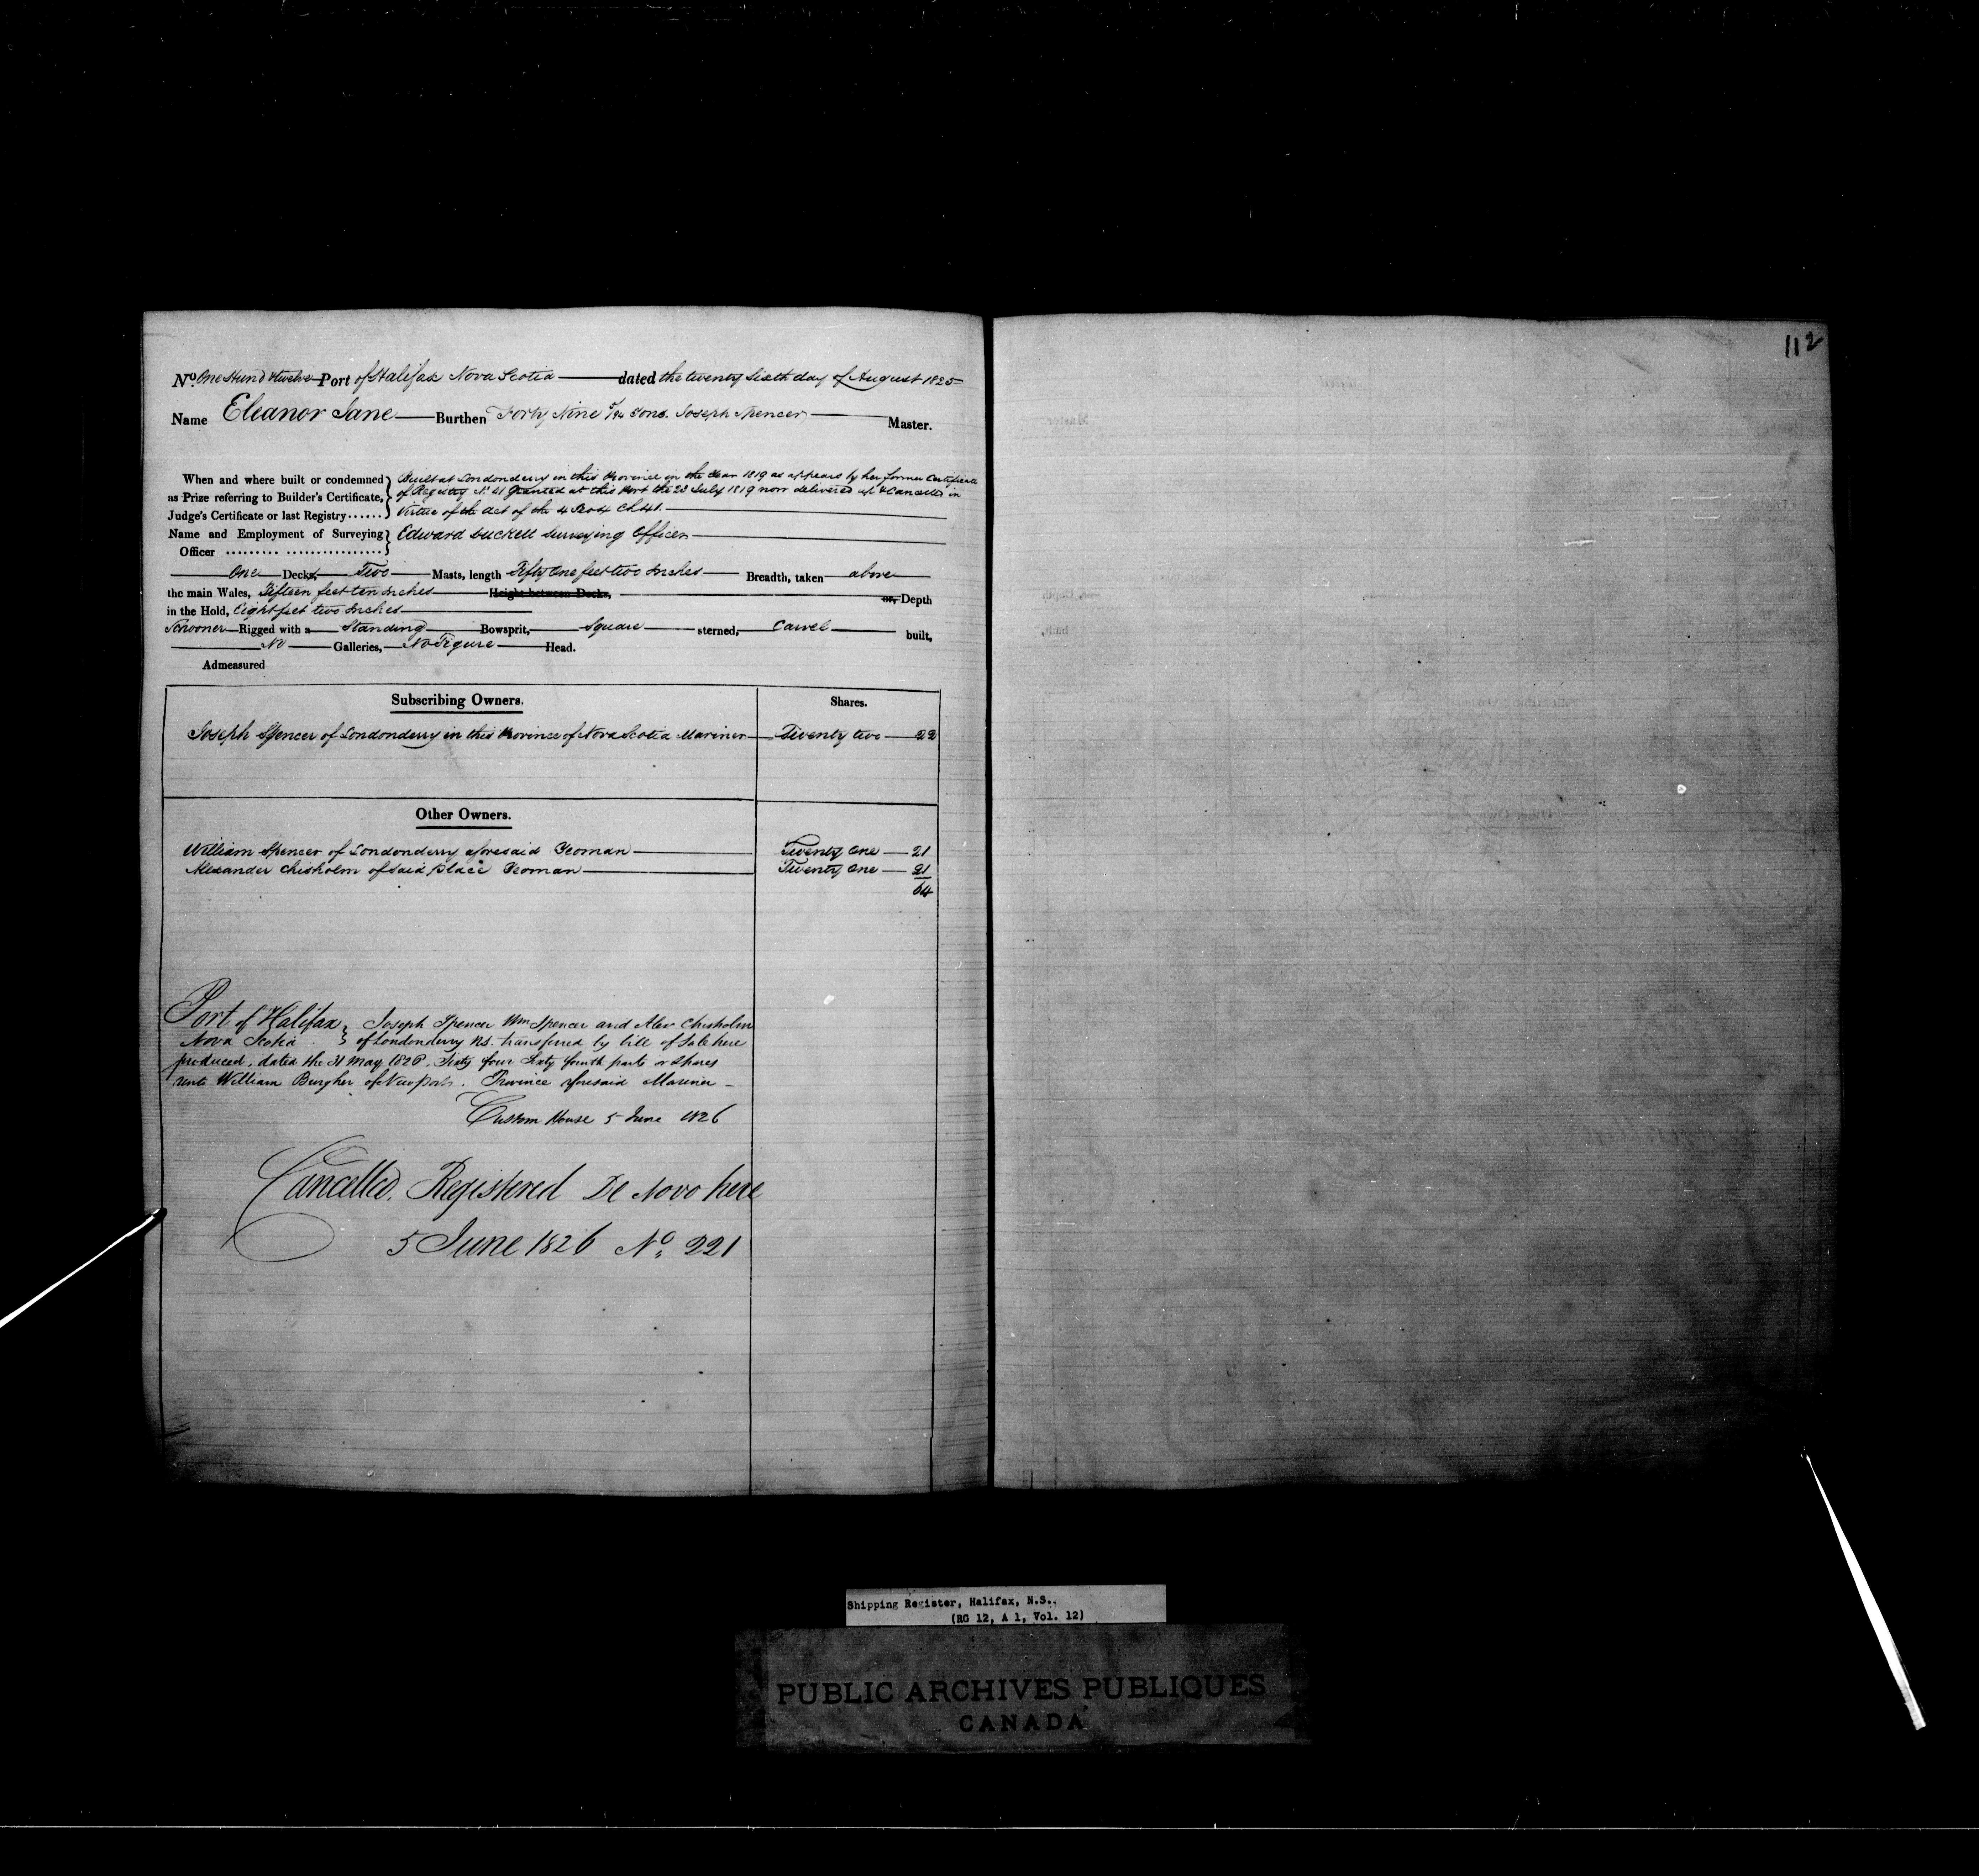 112
No. One Hund & twelve Port of Halifax Nova Scotia dated the twenty sixth day of August 1825
Name Eleanor Jane Burthen Forty Nine 5/94 Tons. Joseph Spencer Master.
When and where built or condemned as Prize referring to Builder's Certificate, Judge's Certificate or last Registry......
Built at Londonderry in this Province in the Year 1819 as appears by her former Certificate
of Registry No. 41 Granted at this Port the 23 July 1819 now delivered up & Cancelled in
Virtue of the Act of the 4 Geo 4 Ch 41.
Name and Employment of Surveying Officer ......... ................. Edward Suckell Surveying Officer
One Decks, Two Masts, length Fifty One feet two Inches Breadth, taken above
the main Wales, Fifteen feet ten Inches Height between Decks, or, Depth
in the Hold, Eight feet two Inches
Schooner Rigged with a Standing Bowsprit, Square sterned, Carvel built,
No Galleries, No Figure Head.
Admeasured
Subscribing Owners. Shares.
Joseph Spencer of Londonderry in this Province of Nova Scotia Mariner Twenty two 22
Other Owners.
William Spencer of Londonderry aforesaid Yeoman Twenty One 21
Alexander Chisholm of said place Yeoman Twenty One 21
64
Port of Halifax Joseph Spencer Wm Spencer and Alexr Chisholm
Nova Scotia of Londonderry N.S. transferred by bill of Sale here
produced, dated the 31 May 1826. Sixty four Sixty fourth parts or Shares
unto William Burgher of Newport. Province aforesaid Mariner
Custom House 5 June 1826
Cancelled. Registered De Novo here
5 June 1826 No. 221
Shipping Register, Halifax, N.S..
(RG 12, A 1, Vol. 12)
PUBLIC ARCHIVES PUBLIQUES
CANADA